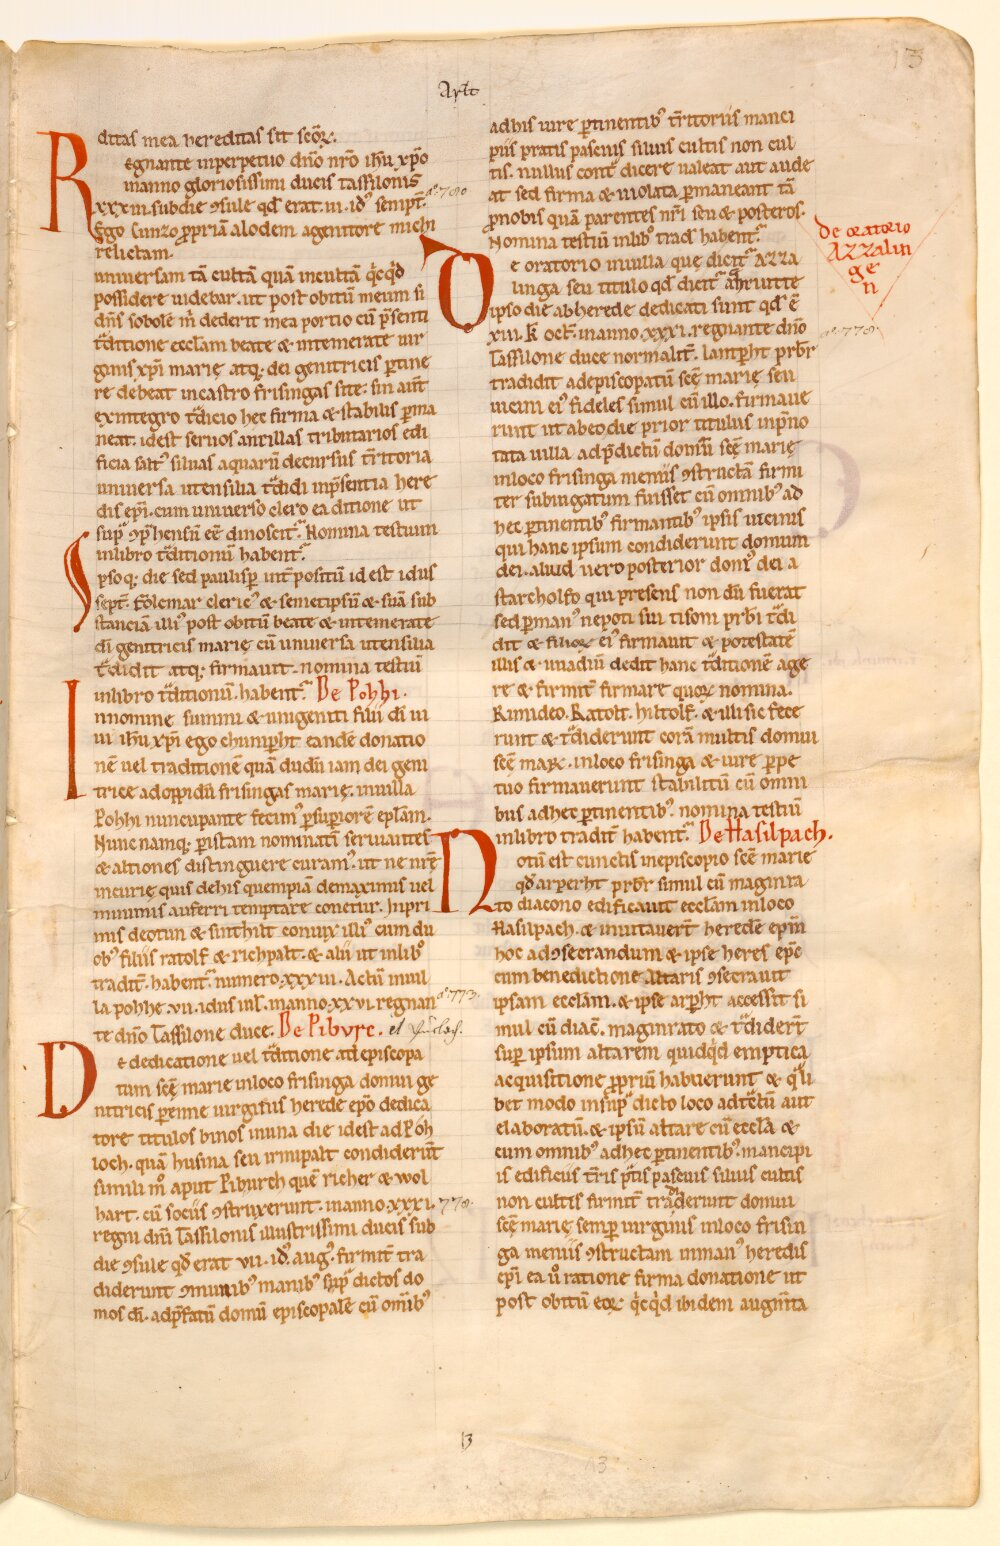 13
Arł̃t
ditas mea hereditas sit scõꝝ.
Regnante inperpetuo dn̄o nr̄o ihū xp̄o
inanno gloriosissimi ducis tassilonis
XXXIII. sub die ꝯsule qd̄ erat. III. id᾽ sempt̄. aº. 780
Ego Cunzo ꝓpriā alodem agenitore michi
relictam.
universam tā cultā quā incultā q̇cq̇d
possidere uidebar. ut post obitū meum si
dn̄s sobolē m̄ dederit mea portio cū p̄senti
t̄ditione eccl̄am beate & intemerate uir
ginis xp̄i marię atq; dei genitricis ptine
re debeat incastro frisingas site: sin aut̄
exintegro t̄dicio hec firma & stabilis pma
neat. id est seruos ancillas tributarios edi
ficia salt᾽ siluas aquarū decursus t̄ritoria
uniuersa utensilia t̄didi inp̄sentia here
dis ep̄i. cum uniuerso clero ea ditione ut
sup̄ ꝯp̄hensū eē dinoscit᾽. Nomina testium
inlibro t̄ditionū habent᾽.
Ipsoq; die sed paulisp int̄positū id est idus
sept̄. Folcmar cleric᾽ & semetipsū & suā sub
stanciā illi᾽ post obitū beate & intemerate
dī genitricis marię cū uniuersa utensilia
t̄didit atq; firmauit. nomina testiū
inlibro t̄ditionū. habent᾽. De Pohhi.
Innomine summi & unigeniti filii dī ui
ui ihū xp̄i ego chunipht eandē donatio
nē uel traditionē quā dudū iam dei geni
trice adoppidū frisingas marię. inuilla
Pohhi nuncupante fecim᾽ psupiorē epl̄am.
Nunc namq; pistam nominatī seruantes
& altiones distinguere curam᾽. ut ne nrę
incurię quis dehis quempiā demaximis uel
minimis auferri temptare conetur. Inpri
mis deotun & sinthilt coniux illi᾽ cum du
ob᾽ filiis ratolf & richpalt. & alii ut inlib᾽o
tradit̄. habent᾽. numero. XXXIII. Actū inuil
la pohhe. VII. idus iul̄. inanno. XXVI. regnan aº. 773
te dn̄o Tassilone duce. De Piburc. et
De dedicatione uel t̄ditione ad episcopa
tum scę marie inloco frisinga domui ge
nitricis perenne uirginis herede ep̄o dedica
tore titulos binos inuna die id est ad Poh
loch. quā husina seu irinpalt condiderūt
simili m̊ aput Piburch quē richer & wol
hart. cū sociis ꝯstruxerunt. inanno. XXXI. 778.
regni dn̄i Tassilonis illustrissimi ducis sub
die ꝯsule qd̄ erat VII. id᾽. aug᾽. firmit̄ tra
diderunt ꝯmunib᾽ manib᾽ sup̄ dictos do
mos dī. adp̄fatū domū episcopalē cū om̄ib᾽
adhis iure ptinentib᾽ t̄ritoriis manci
piis pratis pascuis siluis cultis non cul
tis. nullus cont̄ dicere ualeat aut aude
at sed firma & inuiolata pmaneant tā
ꝓnobis quā parentes nr̄i seu & posteros.
Nomina testiū inlib᾽o trad᾽ habent᾽.
De oratorio inuilla quę dicit᾽ Azza
linga seu titulo qd̄ dicit᾽ ahriutte
ipso die abherede dedicati sunt qd̄ ē
XIII. k̄ oct̄. inanno. XXXI. regnante dn̄o
Tassilone duce normalit̄. lantpht prbr̄
tradidit adepiscopatū scę marię seu
uicini ei᾽ fideles simul cū illo. firmaue
runt ut abeodie prior titulus inp̄no
tata uilla adp̄dictū domū scę marię
inloco frisinga meniis ꝯstructā firmi
ter subiugatum fuisset cū omnib᾽ ad
hec ptinentib᾽ firmantib᾽ ipsis uicinis
qui hanc ipsum condiderunt domum
dei. aliud uero posterior dom᾽ dei a
starcholfo qui presens non dū fuerat
sed pman᾽ nepoti sui tisom prb̄i t̄di
dit & filioꝝ ei᾽ firmauit & potestatē
illis & uuadiū dedit hanc t̄ditionē age
re & firmit̄ firmare quoꝝ nomina.
Rimideo. Ratolt. hiltolf. & illi sic fece
runt & t̄diderunt corā multis domui
scę marię. inloco frisinga & iure ppe
tuo firmauerunt stabilitū cū omni
bus adhec ptinentib᾽. nomina testiū
inlibro tradit̄ habent᾽. De Hasilpach.
Notū est cunctis inepiscopio scę marię
qd̄ arperht prbr̄ simul cū maginra
to diacono edificauit eccl̄am inloco
Hasilpach. & inuitauert̄ heredē ep̄m
hoc adꝯsecrandum & ipse heres ep̄c
cum benedictione altaris ꝯsecrauit
ipsam eccl̄am. & ipse arpht accessit si
mul cū diac̄. maginrato & t̄didert̄
sup ipsum altarem quidq̇d emptica
acquisitione ꝓpriū habuerunt & q̇li
bet modo insup̄ dicto loco adtētū aut
elaboratū. & ipsū altare cū eccl̄a &
cum omnib᾽ adhec ptinentib᾽. mancipi
is edificiis t̄ris p̄tis pascuis siluis cultis
non cultis firmit̄ tradiderunt domui
scę marię semp uirginis inloco frisin
ga meniis ꝯstructam inman᾽ heredis
ep̄i ea ů ratione firma donatione ut
post obitū eoꝝ q̇cq̇d ibidem augm̄ta
de oratorio
AZZalin
ge
n
aº. 778.
13
13